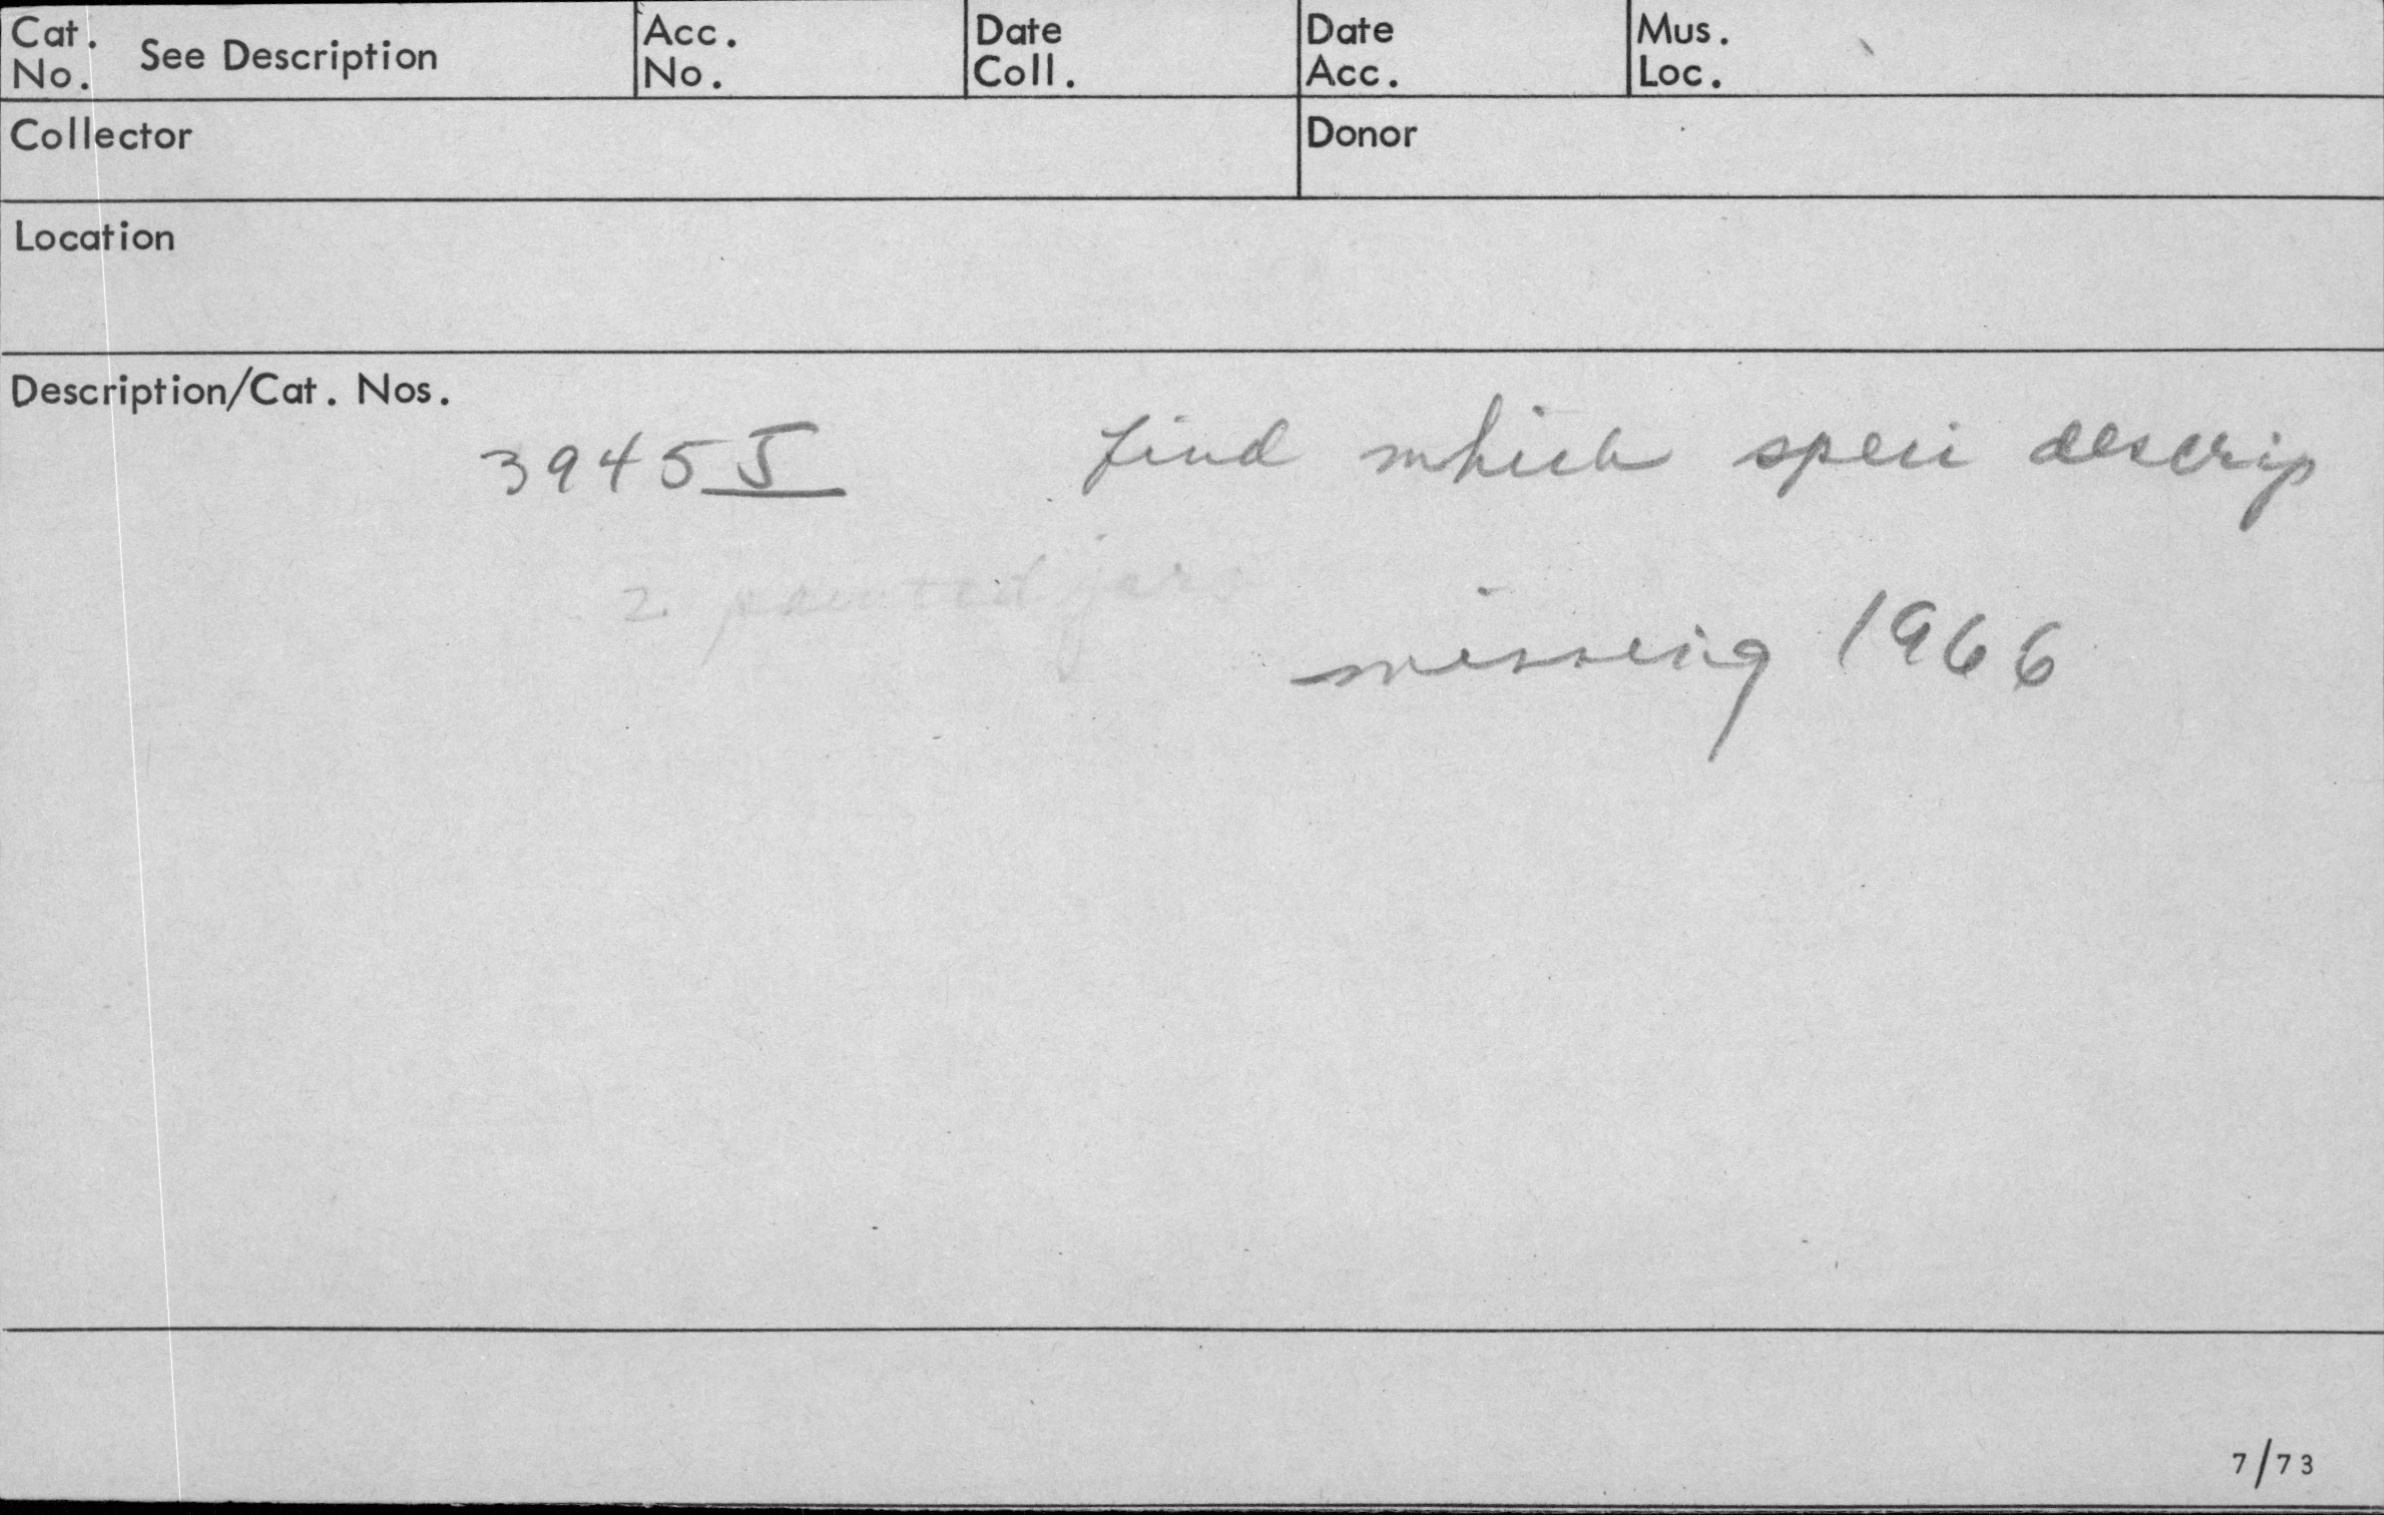 Cat. No. See Description
Acc. No.
Date Coll.
Date Acc.
Mus. Loc.
Collector
Donor
Location
Description/Cat. Nos.
3945 J find which speci descrip
2 painted jars
missing 1966
7/73